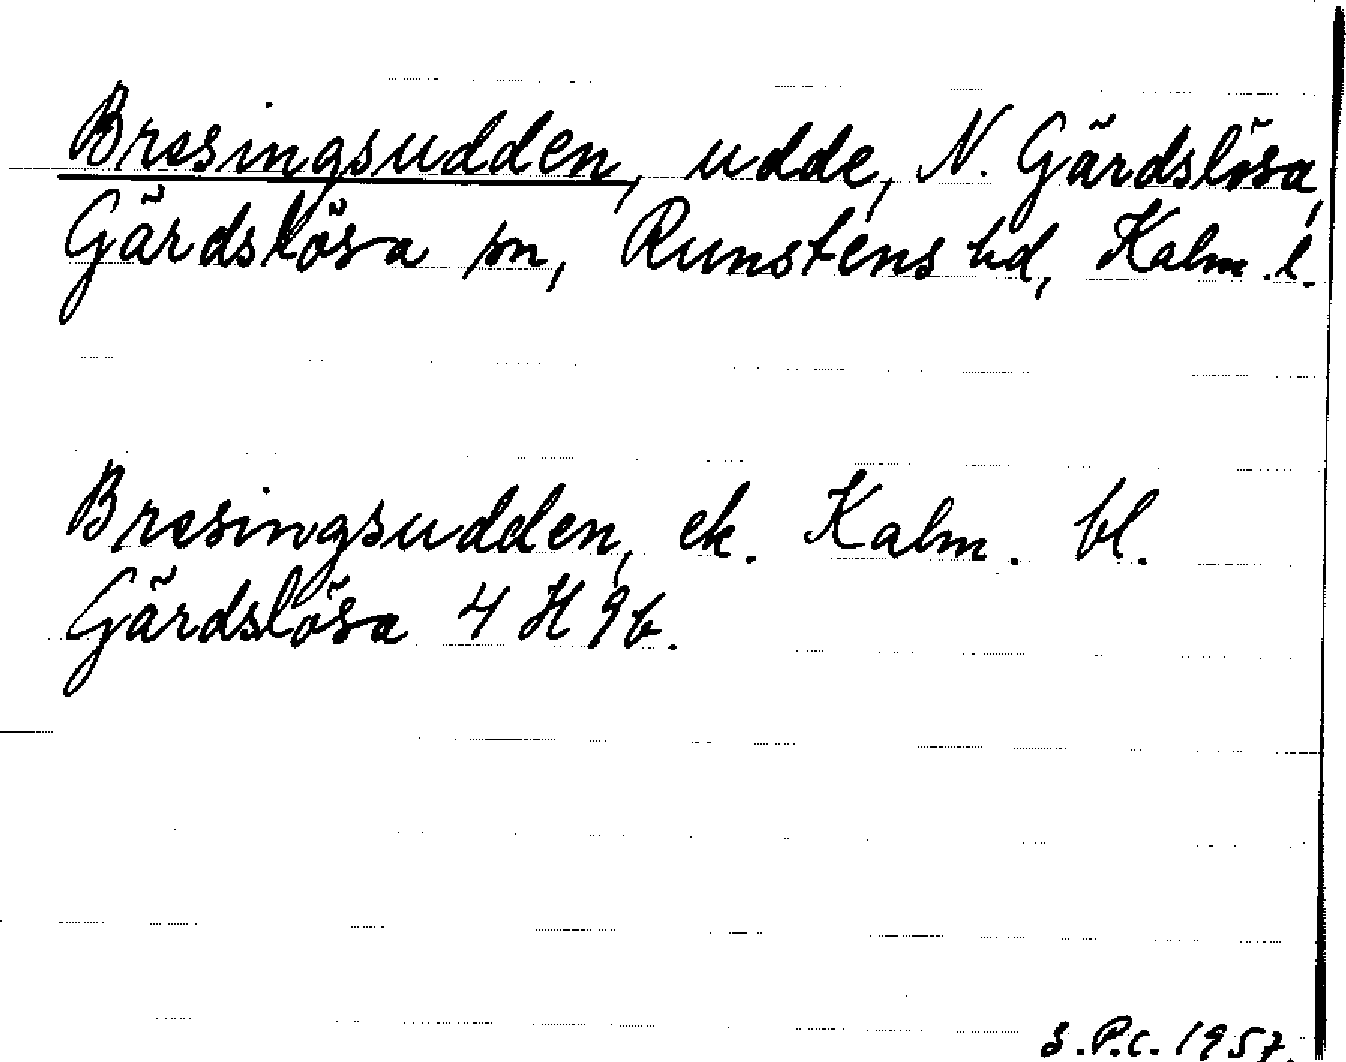 Bresingsudden, udde, N. Gärdslösa,
Gärdslösa sn, Runstens hd, Kalm. l.
Bresingsudden, ek. Kalm. bl.
Gärdslösa 4 H 9b.
S.P.C. 1957.